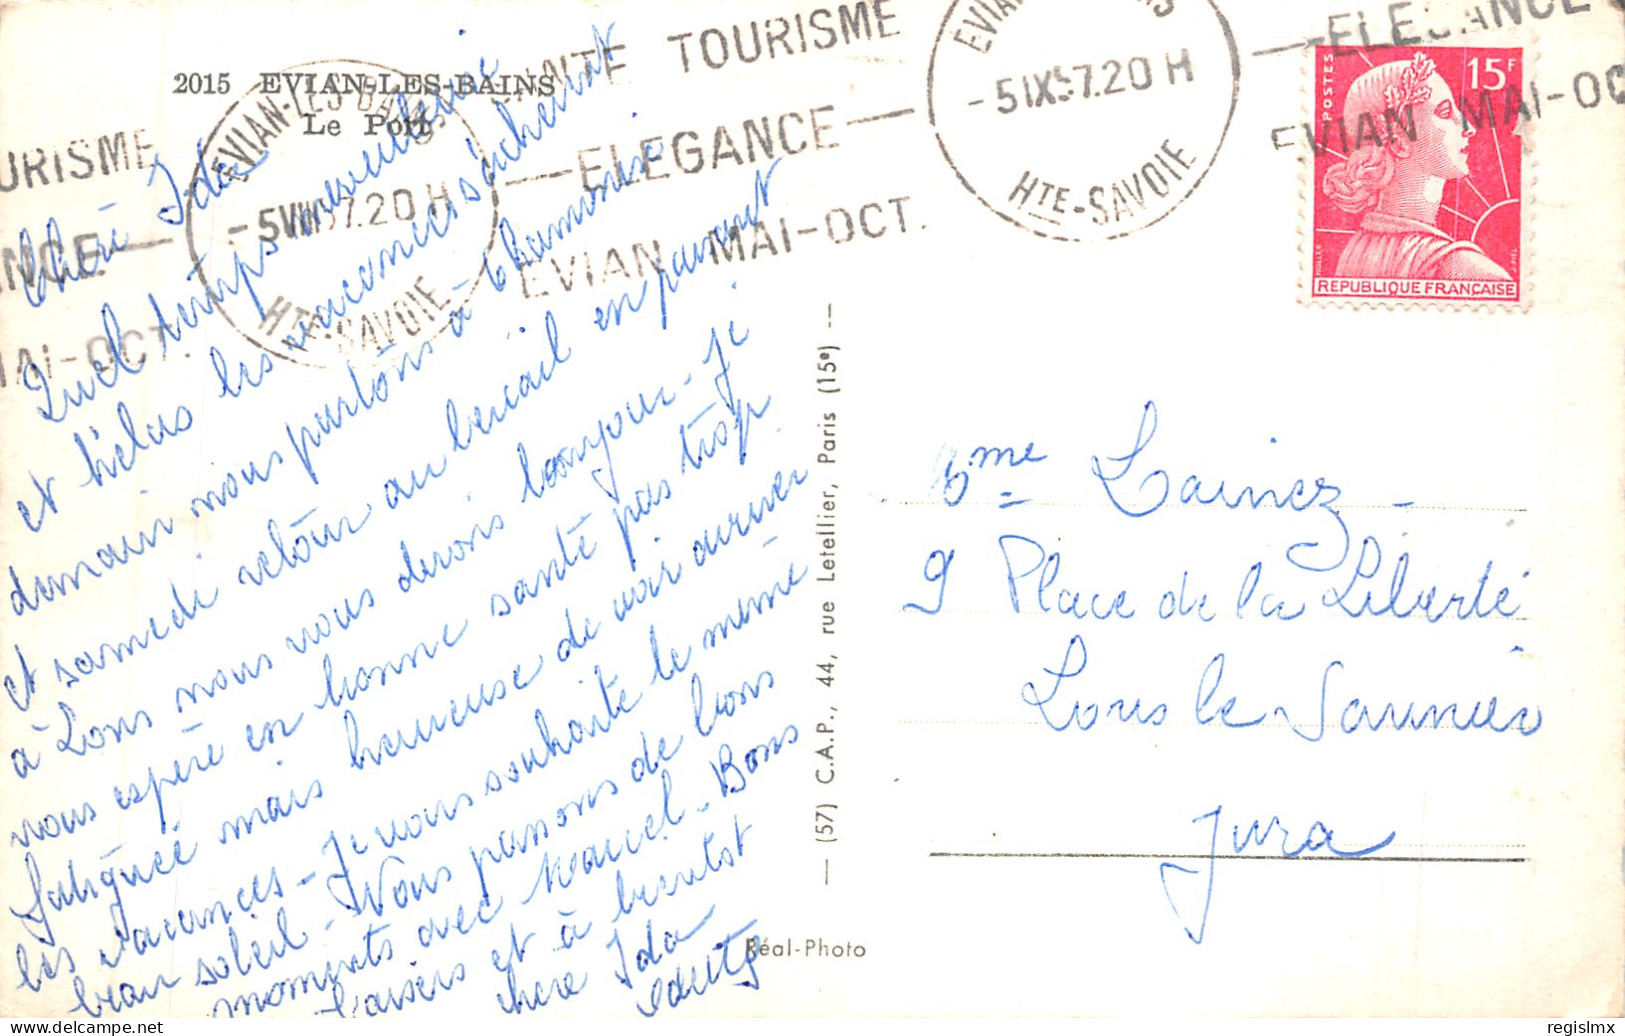 2015 EVIAN-LES-BAINS
Le Port
SANTE TOURISME
ELEGANCE
EVIAN MAI-OCT.
EVIAN-LES-BAINS
-5 VIII 57.20H
HTE-SAVOIE
OURISME
ANCE
MAI-OCT.
EVIAN
-5IX57.20H
HTE-SAVOIE
ELEGANCE
EVIAN MAI-OC
POSTES
15F
REPUBLIQUE FRANÇAISE
Chère Ida
Quel temps merveilleux
et hélas les vacances s'achèvent
demain nous partons à Chamonix
et samedi retour au bercail en passant
à Lons nous vous dirons bonjour - Je
vous espère en bonne santé pas trop
fatiguée mais heureuse de voir arriver
les vacances - Je vous souhaite le même
beau soleil - Nous passons de bons
moments avec Marcel - Bons
baisers et à bientôt
chère Ida
— (57) C.A.P., 44, rue Letellier, Paris (15e) —
Réal-Photo
Mme Lainez -
9 Place de la Liberté
Lons le Saunier
Jura
regislmx